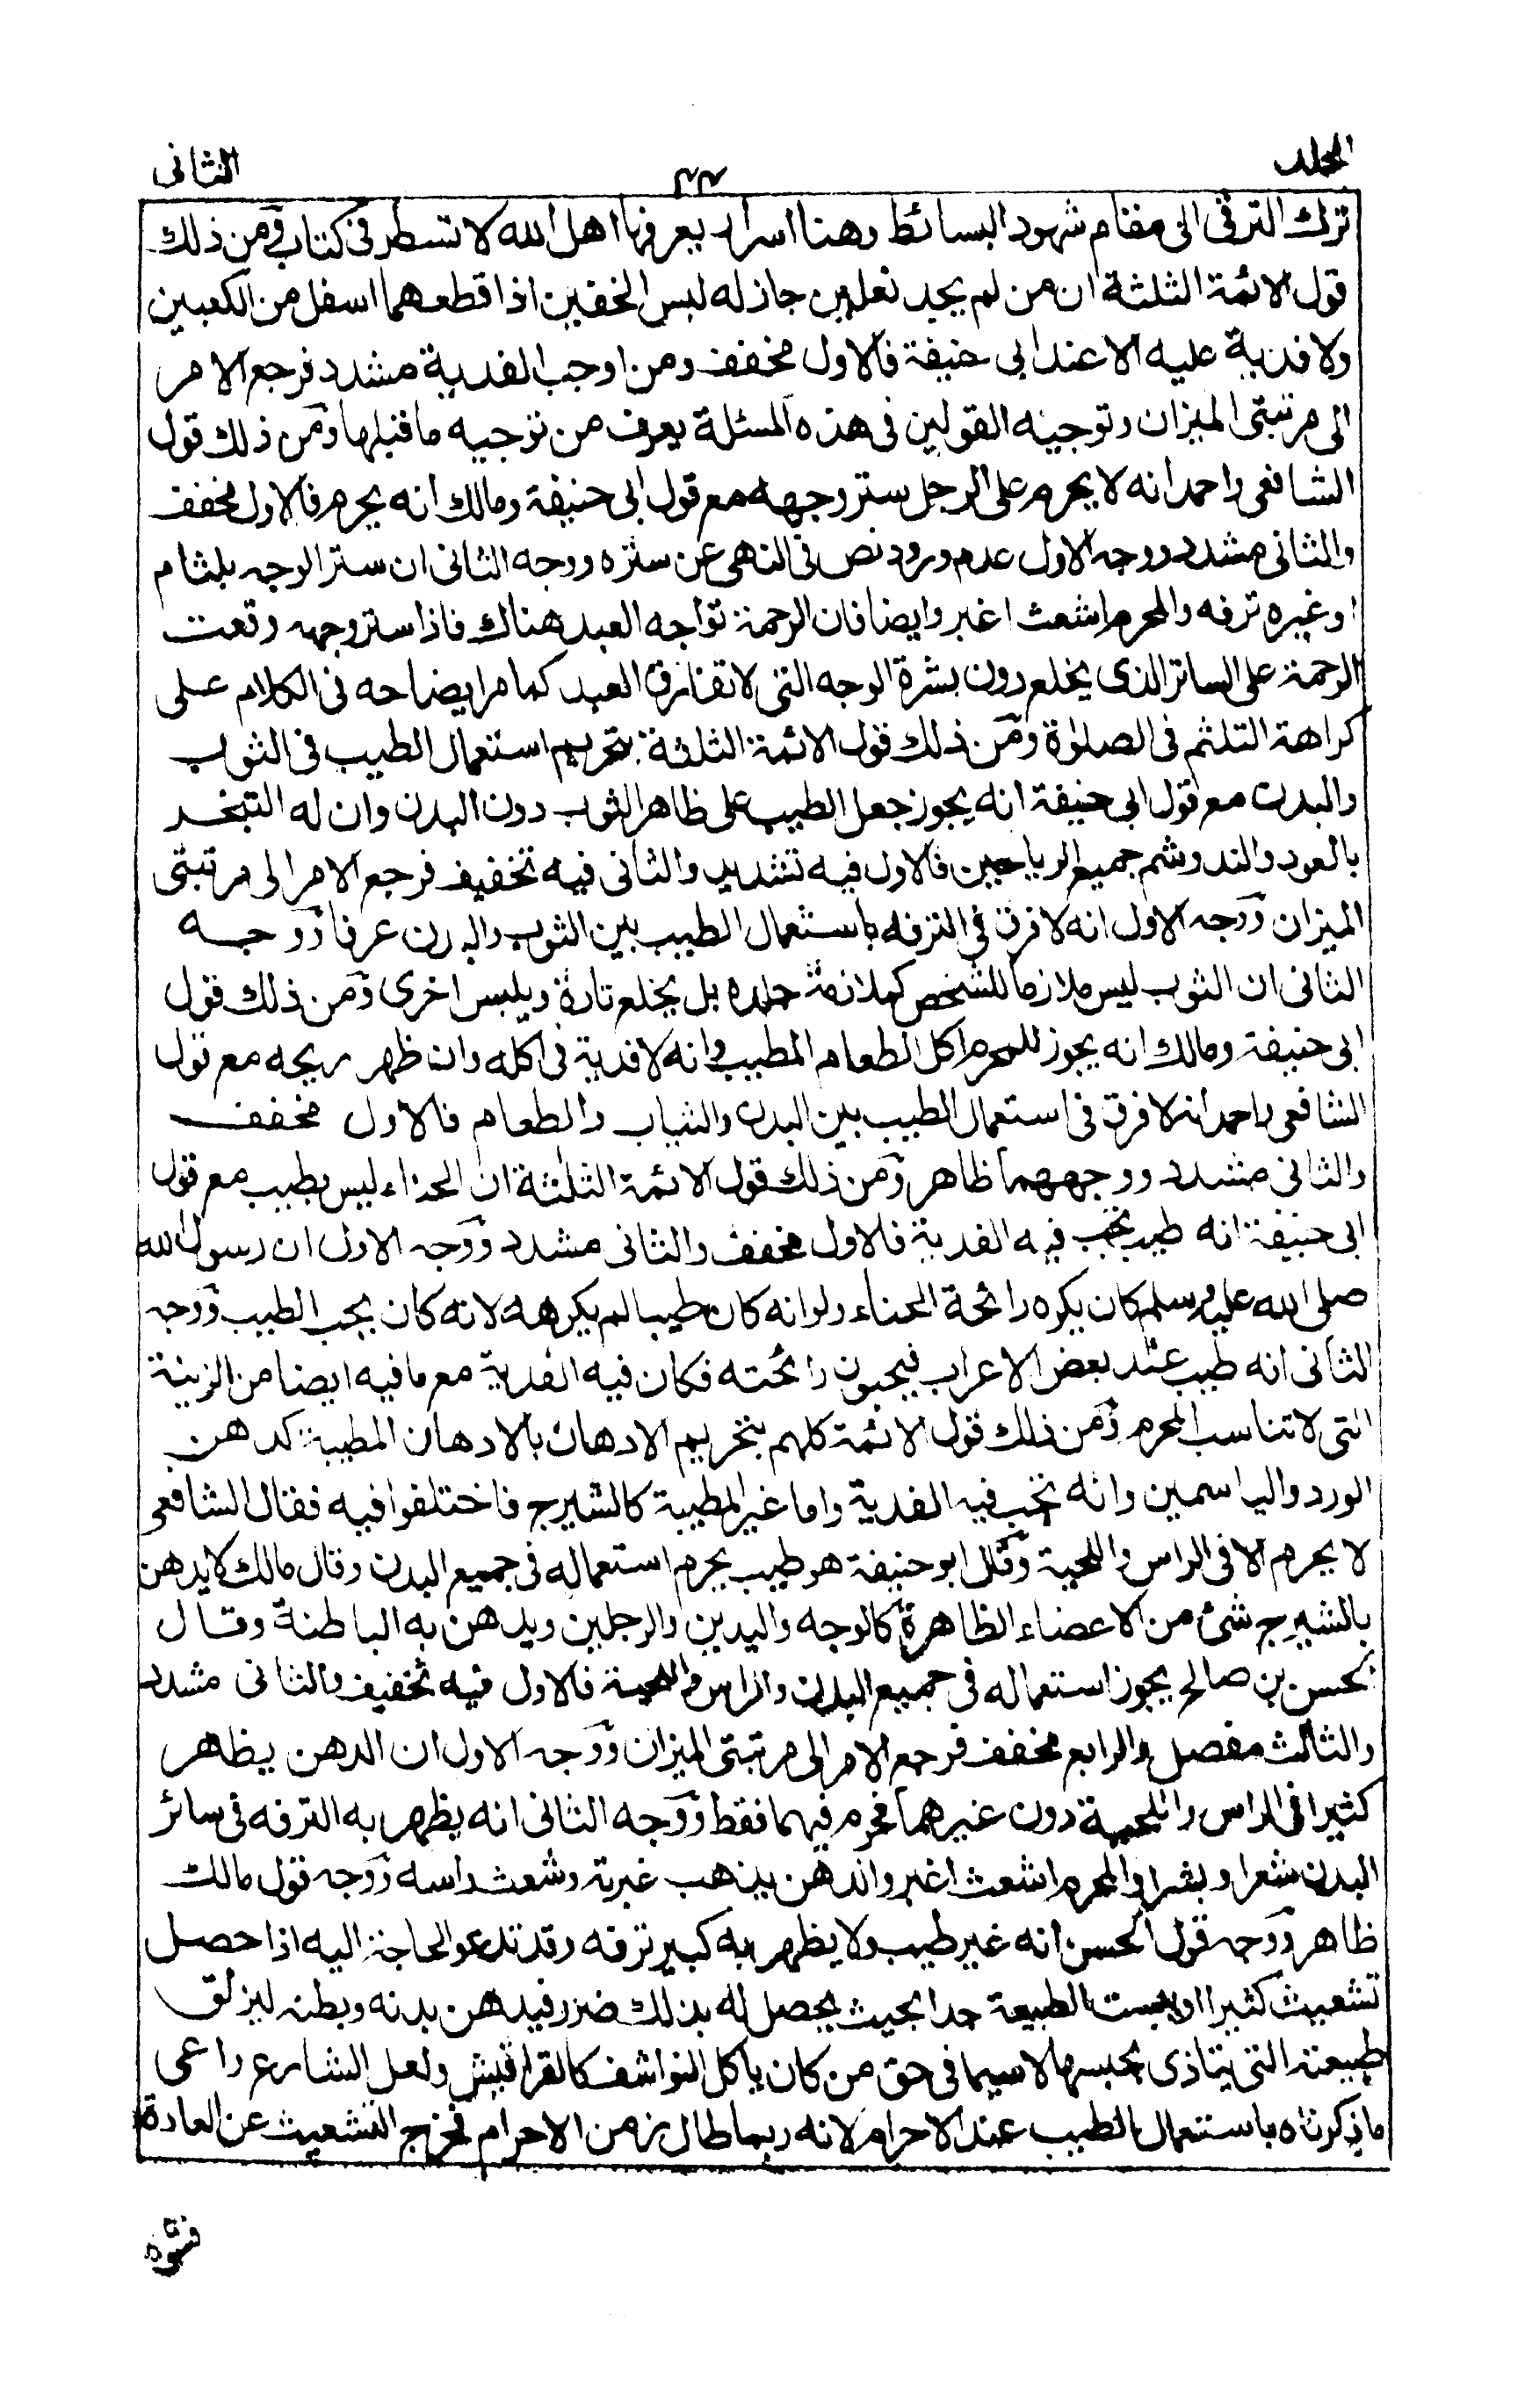 المجلد
٤٤
الثانى
ترك الترقى الى مقام شهود البسائط وهنا اسرار يعرفها اهل الله لا تسطر فى كتاب ومن ذلك
قول الائمة الثلثة ان من لم يجد نعلين جاز له لبس الخفين اذا قطعهما اسفل من الكعبين
ولا فدية عليه الا عند ابى حنيفة فالاول مخفف ومن اوجب الفدية مشدد فرجع الامر
الى مرتبتى الميزان وتوجيه القولين فى هذه المسئلة يعرف من توجيه ما قبلها ومن ذلك قول
الشافعى واحمد انه لا يحرم على الرجل ستر وجهه مع قول ابى حنيفة ومالك انه يحرم فالاول مخفف
والثانى مشدد ووجه الاول عدم ورود نص فى النهى عن ستره ووجه الثانى ان ستر الوجه بلثام
او غيره ترفه والمحرم اشعث اغبر وايضا فان الرحمة تواجه العبد هناك فاذا ستر وجهه وقعت
الرحمة على الساتر الذى يخلع دون بشرة الوجه التى لا تفارق العبد كما مر ايضاحه فى الكلام على
كراهة التلثم فى الصلوٰة ومن ذلك قول الائمة الثلثة بتحريم استعمال الطيب فى الثوب
والبدن مع قول ابى حنيفة انه يجوز جعل الطيب على ظاهر الثوب دون البدن وان له التبخر
بالعود والند وشم جميع الرياحين فالاول فيه تشديد والثانى فيه تخفيف فرجع الامر الى مرتبتى
الميزان ووجه الاول انه لا فرق فى الترفه باستعمال الطيب بين الثوب والبدن عرفا ووجه
الثانى ان الثوب ليس ملازما للشخص كملازمة جلده بل يخلع تارة ويلبس اخرى ومن ذلك قول
ابى حنيفة ومالك انه يجوز للمحرم اكل الطعام المطيب وانه لا فدية فى اكله وان ظهر ريحه مع قول
الشافعى واحمد انه لا فرق فى استعمال الطيب بين البدن والثياب والطعام فالاول مخفف
والثانى مشدد ووجههما ظاهر ومن ذلك قول الائمة الثلثة ان الحناء ليس بطيب مع قول
ابى حنيفة انه طيب تجب فيه الفدية فالاول مخفف والثانى مشدد ووجه الاول ان رسول الله
صلى الله عليه وسلم كان يكره رائحة الحناء ولو انه كان طيبا لم يكرهه لانه كان يحب الطيب ووجه
الثانى انه طيب عند بعض الاعراب فيحبون رائحته فكان فيه الفدية مع ما فيه ايضا من الزينة
التى لا تناسب المحرم ومن ذلك قول الائمة كلهم بتحريم الادهان بالادهان المطيبة كدهن
الورد والياسمين وانه تجب فيه الفدية واما غير المطيبة كالشيرج فاختلفوا فيه فقال الشافعى
لا يحرم الا فى الراس واللحية وقال ابو حنيفة هو طيب يحرم استعماله فى جميع البدن وقال مالك لا يدهن
بالشيرج شئ من الاعضاء الظاهرة كالوجه واليدين والرجلين ويدهن به الباطنة وقال
الحسن بن صالح يجوز استعماله فى جميع البدن والراس واللحية فالاول فيه تخفيف والثانى مشدد
والثالث مفصل والرابع مخفف فرجع الامر الى مرتبتى الميزان ووجه الاول ان الدهن يظهر
كثيرا فى الراس واللحية دون غيرهما فحرم فيهما فقط ووجه الثانى انه يظهر به الترفه فى سائر
البدن شعرا وبشرا والمحرم اشعث اغبر والدهن يذهب غبرته وشعث راسه ووجه قول مالك
ظاهر ووجه قول الحسن انه غير طيب ولا يظهر به كبير ترفه وقد تدعو الحاجة اليه اذا حصل
تشعيث كثير او يبست الطبيعة جدا بحيث يحصل له بذلك ضرر فيدهن بدنه وبطنه ليزلق
طبيعته التى يتاذى بحبسها لا سيما فى حق من كان ياكل النواشف كالقراقيش ولعل الشارع راعى
ما ذكرناه باستعمال الطيب عند الاحرام لانه ربما طال زمن الاحرام فخرج التشعيث عن العادة